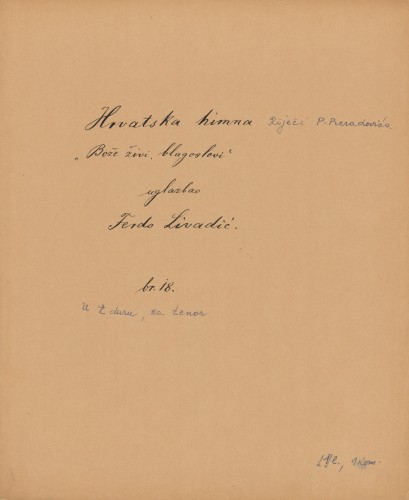 Hrvatska himna Riječi P. Preradovića
„Bože živi, blagoslovi"
uglazbao
Ferdo Livadić.
br. 18.
U Es duru, za tenor